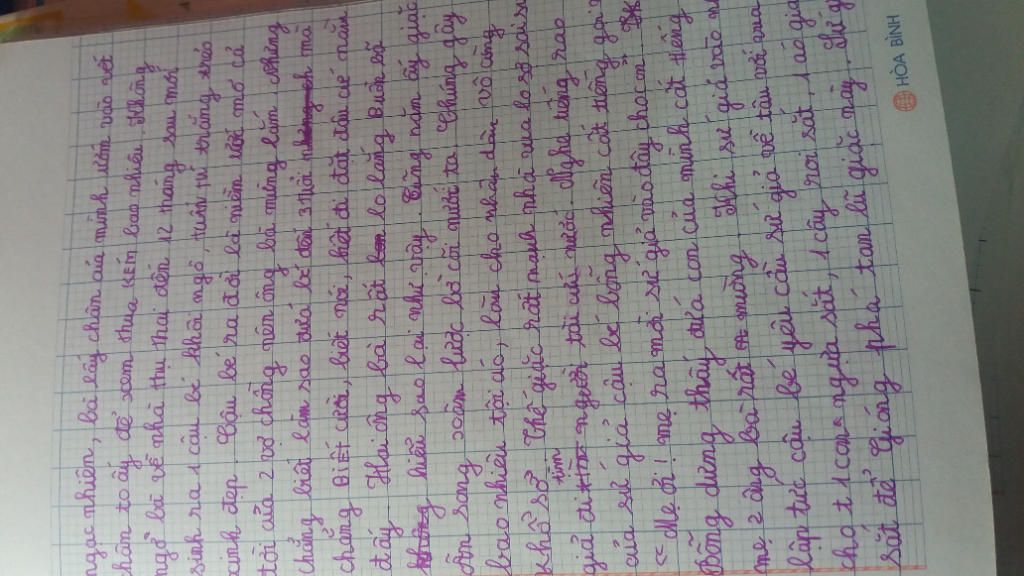 ngạc nhiên, bà lấy chân của mình ướm vào vết
chân to ấy để xem thua kém bao nhiêu. Không
ngờ bà về nhà thụ thai đến 12 tháng sau mới
sinh ra 1 cậu bé khôi ngô, tuấn tú trắng trẻo
xinh đẹp. Cậu bé ra đời là niềm ước mơ cả
đời của 2 vợ chồng nên ông bà mừng lắm. Nhưng
chẳng biết làm sao đứa bé đến 3 tuổi mà
chẳng biết cười, biết nói, biết đi đặt đâu thì nằm
đấy. Hai ông bà rất lo lắng buồn bã
hiểu sao lại như vậy. Cũng năm ấy giặc
Ân sang xâm lược bờ cõi nước ta. Chúng gây
bao nhiêu tội ác, làm cho nhân dân vô cùng
khổ sở. Thế giặc rất mạnh nhà vua lo sợ sai sứ
giả đi tìm người tài cứu nước. Nghe tiếng rao
của sứ giả cậu bé bỗng nhiên cất tiếng gọi
<< Mẹ ơi! mẹ ra mời sứ giả vào đây cho con"
Bỗng dưng thấy đứa con của mình cất tiếng
mẹ 2 ông bà rất mừng. Khi sứ giả vào
lập tức cậu bé yêu cầu sứ giả về tâu với vua
cho t 1 con ngựa sắt, 1 cây roi sắt, 1 áo giáp
sắt để Gióng phá tan lũ giặc này.
HÒA BÌNH